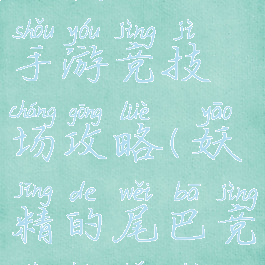 shǒu yóu jìng jì
手游竞技
chǎng gōng lüè yāo
场攻略(妖
jīng de wěi bā jìng
精的尾巴竞